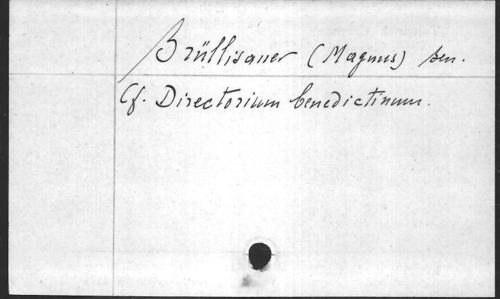 Brüllisauer (Magnus) sen.
Cf. Directorium benedictinum.